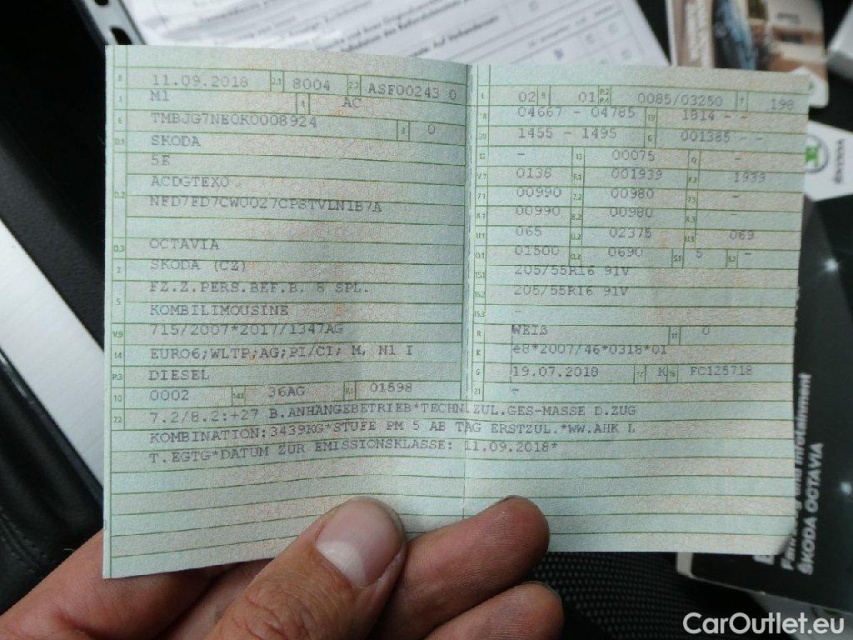 B 11.09.2018 2.1 8004 2.2 ASF00243 0
J M1 4 AC
E TMBJG7NE0K0008924 3 0
D.1 SKODA
5E
D.2 ACDGTEX0
NFD7FD7CW0027CPSTVLN1B7A
D.3 OCTAVIA
2 SKODA (CZ)
5 FZ.Z.PERS.BEF.B. 8 SPL.
KOMBILIMOUSINE
V.9 715/2007*2017/1347AG
14 EURO6;WLTP;AG;PI/CI; M, N1 I
P.3 DIESEL
10 0002 14.1 36AG P.1 01598
L 02 9 01 P.2 P.4 0085/03250 T 198
18 04667 - 04785 19 1814 - -
20 1455 - 1495 G 001385 -
12 - 13 00075 Q -
V.7 0138 F.1 001939 F.2 1939
7.1 00990 7.2 00980 7.3 -
8.1 00990 8.2 00980 8.3 -
U.1 065 U.2 02375 U.3 069
O.1 01500 O.2 0690 S.1 5 S.2 -
15.1 205/55R16 91V
15.2 205/55R16 91V
15.3 -
R WEIß 11 0
K e8*2007/46*0318*01
6 19.07.2018 17 K 16 FC125718
21 -
22 7.2/8.2:+27 B.ANHÄNGEBETRIEB*TECHN.ZUL.GES-MASSE D.ZUG
KOMBINATION:3439KG*STUFE PM 5 AB TAG ERSTZUL.*WW.AHK L
T.EGTG*DATUM ZUR EMISSIONSKLASSE: 11.09.2018*
ŠKODA OCTAVIA
CarOutlet.eu